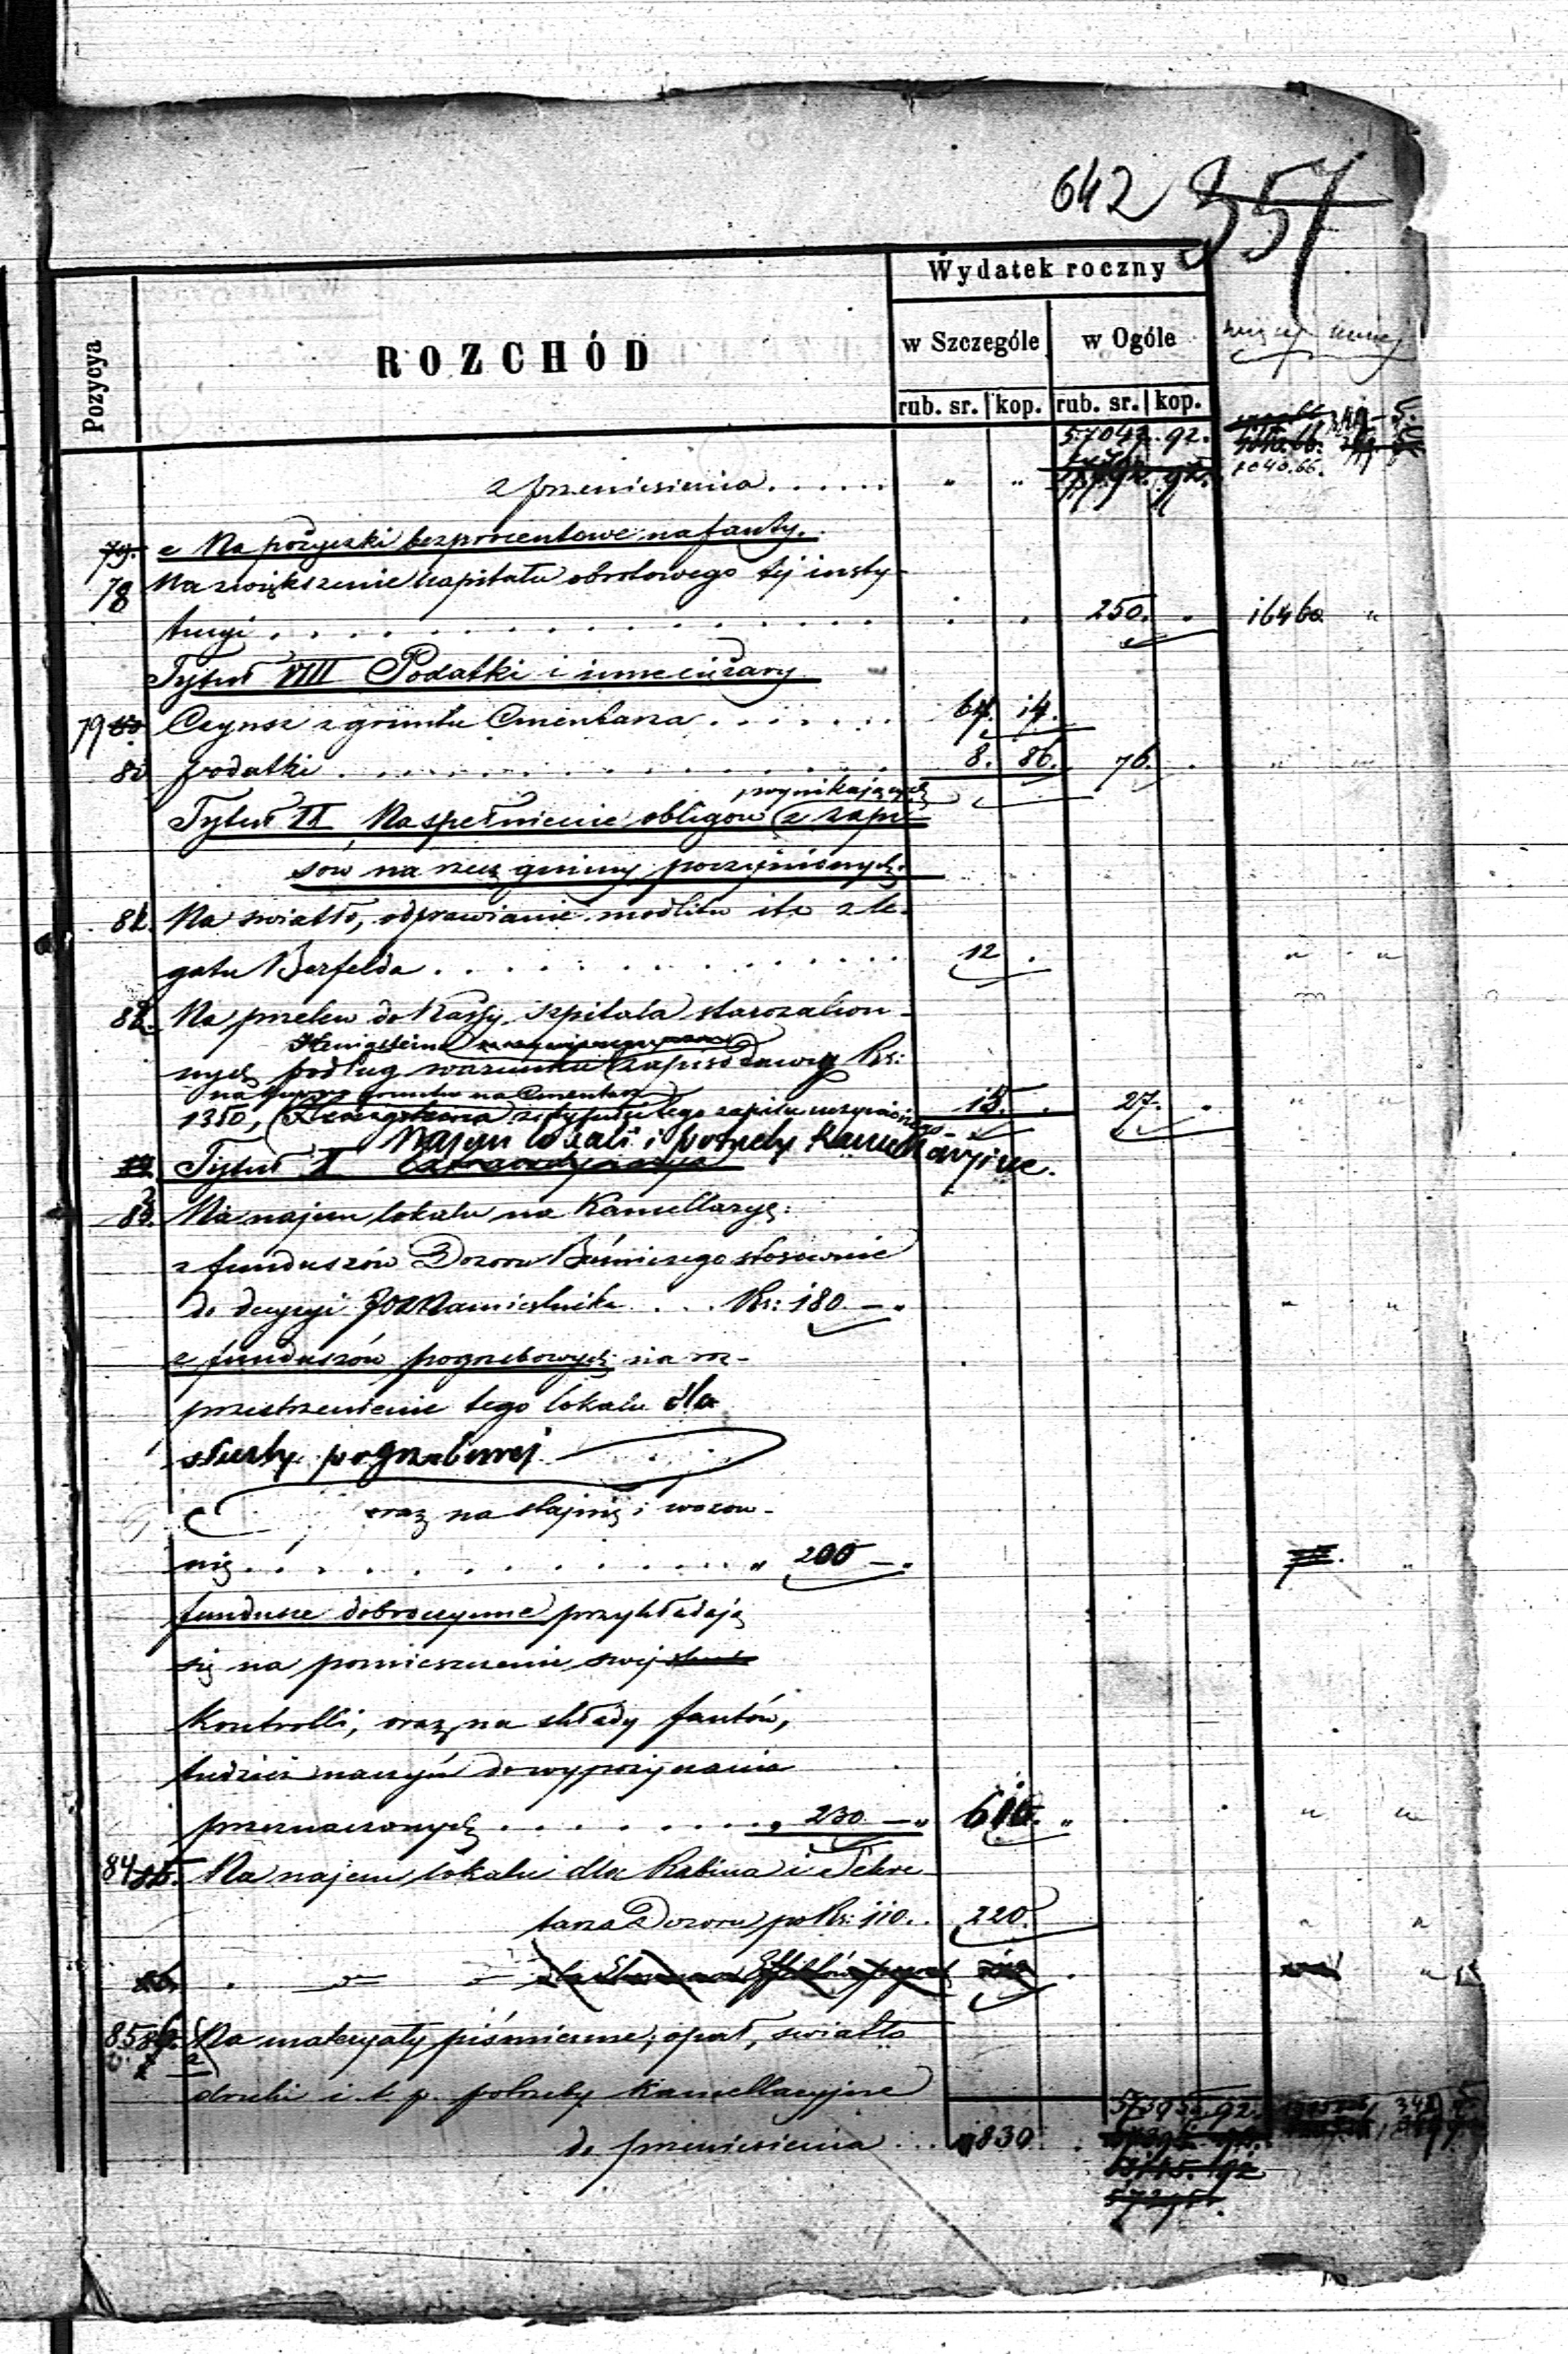 642 357
Wydatek roczny
Pozycya ROZCHÓD w Szczególe w Ogóle więcej mniej
rub. sr. kop. rub. sr. kop.
57042. 92.
z przeniesienia . . . . . . " " 7040.66.
79. e Na pożyczki bezprocentowe na fanty.
78 Na zwiększenie kapitału obrotowego tej insty-
tucyi . . . . . . . . . . . . . . . 250. . 164 60. "
Tytuł VIII Podatki i inne ciężary
79 80 Czynsz z gruntu Cmentarza . . . . . . . 67. 14.
80 podatki . . . . . . . . . . . . . . 8. 86. 76. . " "
wynikających
Tytuł IX Na spełnienie obligów z zapi-
sów na rzecz gminy poczynionych.
81. Na światło, odprawianie modlitw itp z le-
gatu Berfelda . . . . . . . . . . . . 12 . " "
82. Na przelew do Kassy szpitala starozakon-
nych podług warunku zapisodawcy Rs:
na Cmentarz
1350, tego zapisu 15. . 27. . " "
Najem lokali i potrzeby Kancellaryjne.
Tytuł X
83. Na najem lokalu na Kancellaryę:
z funduszów Dozoru Bóżniczego stosownie
do decyzyi JO Namiestnika . . . Rs: 180 — " " "
z funduszów pogrzebowych na roz-
przestrzenienie tego lokalu dla
służby pogrzebowej
oraz na stajnię i wozow-
nię . . . . . . . . . . . . . . " 200 — "
fundusze dobroczynne przykładają
się na pomieszczenie swej
Kontrolli, oraz na składy fantów,
tudzież naczyń do wypożyczania
przeznaczonych . . . . . . . . " 230 — " 610. " " "
84 85. Na najem lokalu dla Rabina i Sekre-
tarza Dozoru po Rs: 110. . 220. " "
85 Na materyały piśmienne, opał, światło
druki i t. p. potrzeby Kancellaryjne
57395. 92.
do przeniesienia . . . 830 .